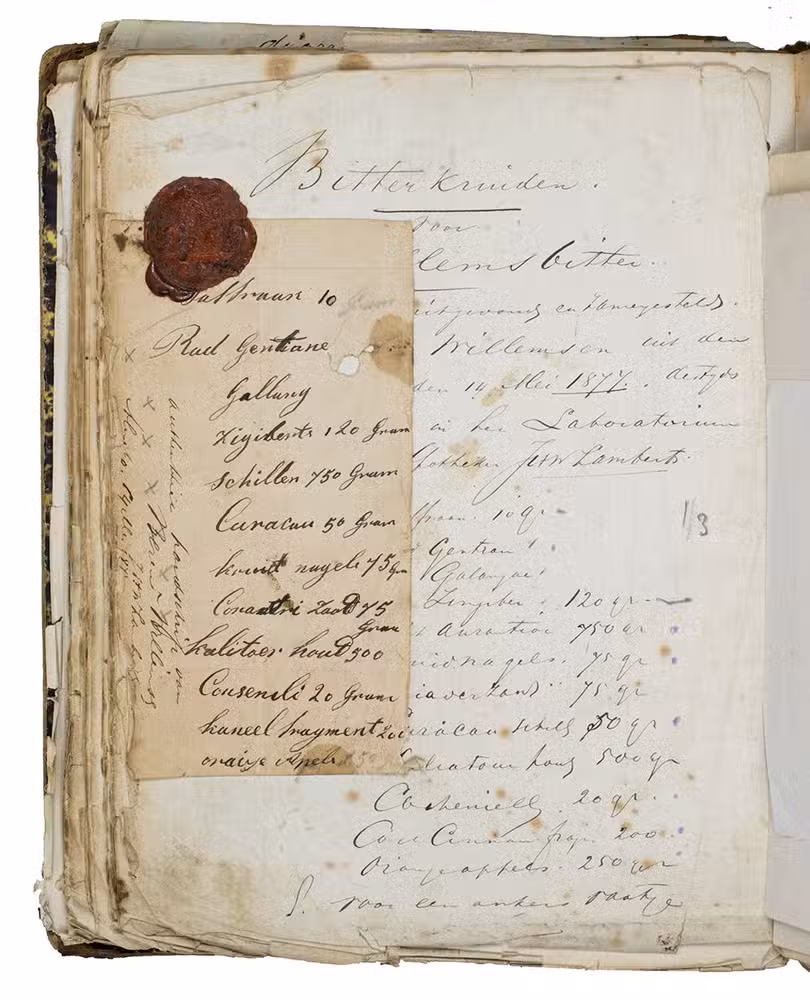 Bitterkruiden.
voor
lems bitter.
uitgevonden en zamengesteld.
Willemsen uit den
den 14 Mei 1877. destyds
in het Laboratorium
potheker Lamberts.
ffraan. 10 gr
Gentian
Galangae
Zingiber. 120 gr
Aurantior 750 gr
uidnagels. 75 gr
iaverzaad 75 gr
uracau schill 50 gr
liatour houd 500 gr
Cochenielle 20 gr.
Cort Cinnam frag. 200
Oranje appels. 250 gr
S. voor een ankers vaatje
1/3
Saffraan 10 Gram
Rad Gentiane
Gallung
Zigiberts 120 Gram
Schillen 750 Gram
Curacau 50 Gram
kruit nagels 75 Gm
Coriantri Zaad 75
Gram
kalitoer houd 500
Consenili 20 Gram
kaneel fragment 200
oraije Apels 250
authentiek handschrift van
Willems